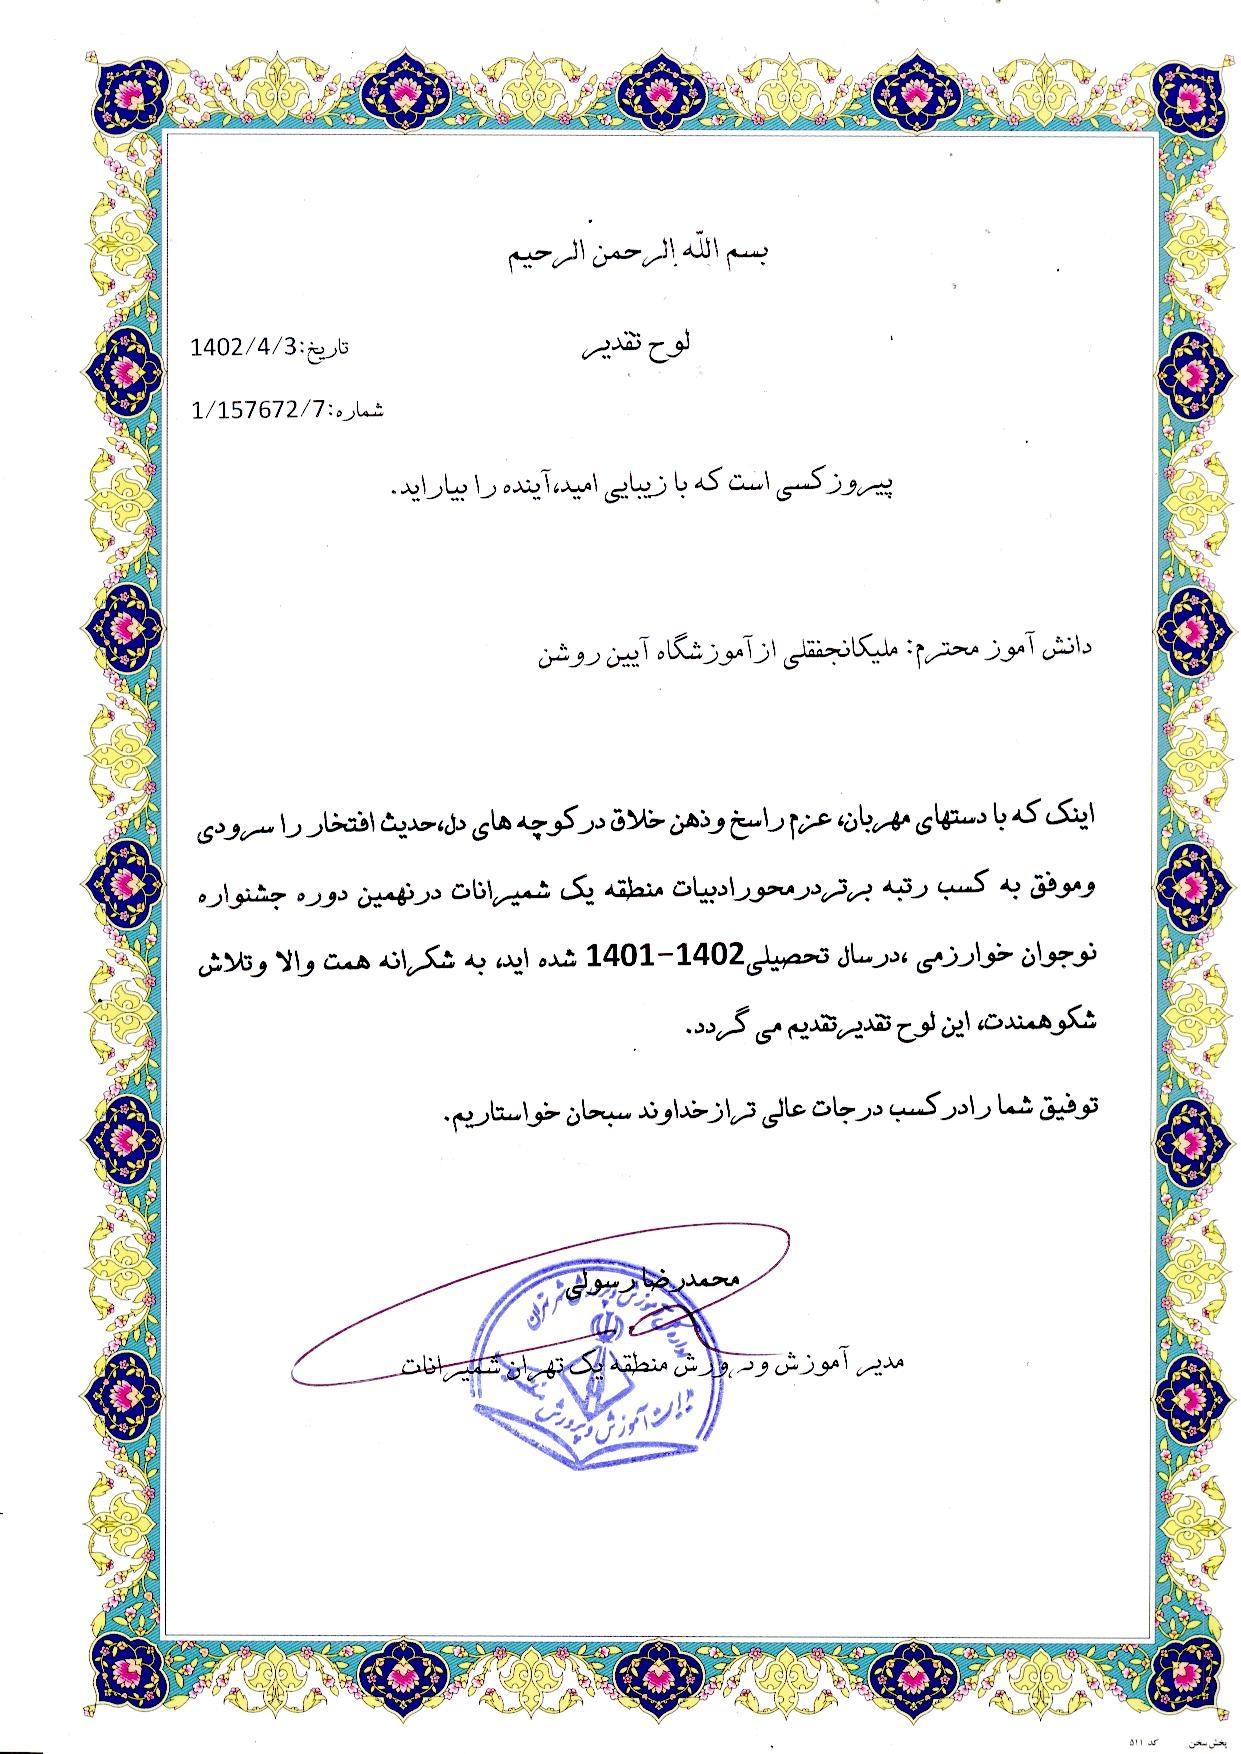 بسم الله الرحمن الرحیم
لوح تقدیر
تاریخ:1402/4/3
شماره:1/157672/7
پیروز کسی است که با زیبایی امید،آینده را بیاراید.
دانش آموز محترم: ملیکانجفقلی از آموزشگاه آیین روشن
اینک که با دستهای مهربان، عزم راسخ وذهن خلاق در کوچه های دل،حدیث افتخار را سرودی
وموفق به کسب رتبه برتردرمحورادبیات منطقه یک شمیرانات درنهمین دوره جشنواره
نوجوان خوارزمی ،درسال تحصیلی1402-1401 شده اید، به شکرانه همت والا وتلاش
شکوهمندت، این لوح تقدیرتقدیم می گردد.
توفیق شما رادرکسب درجات عالی تراز خداوند سبحان خواستاریم.
محمدرضا رسولی
مدیر آموزش وپرورش منطقه یک تهران شمیرانات
آموزش و پرورش
پخش سخن کد ۵۱۱